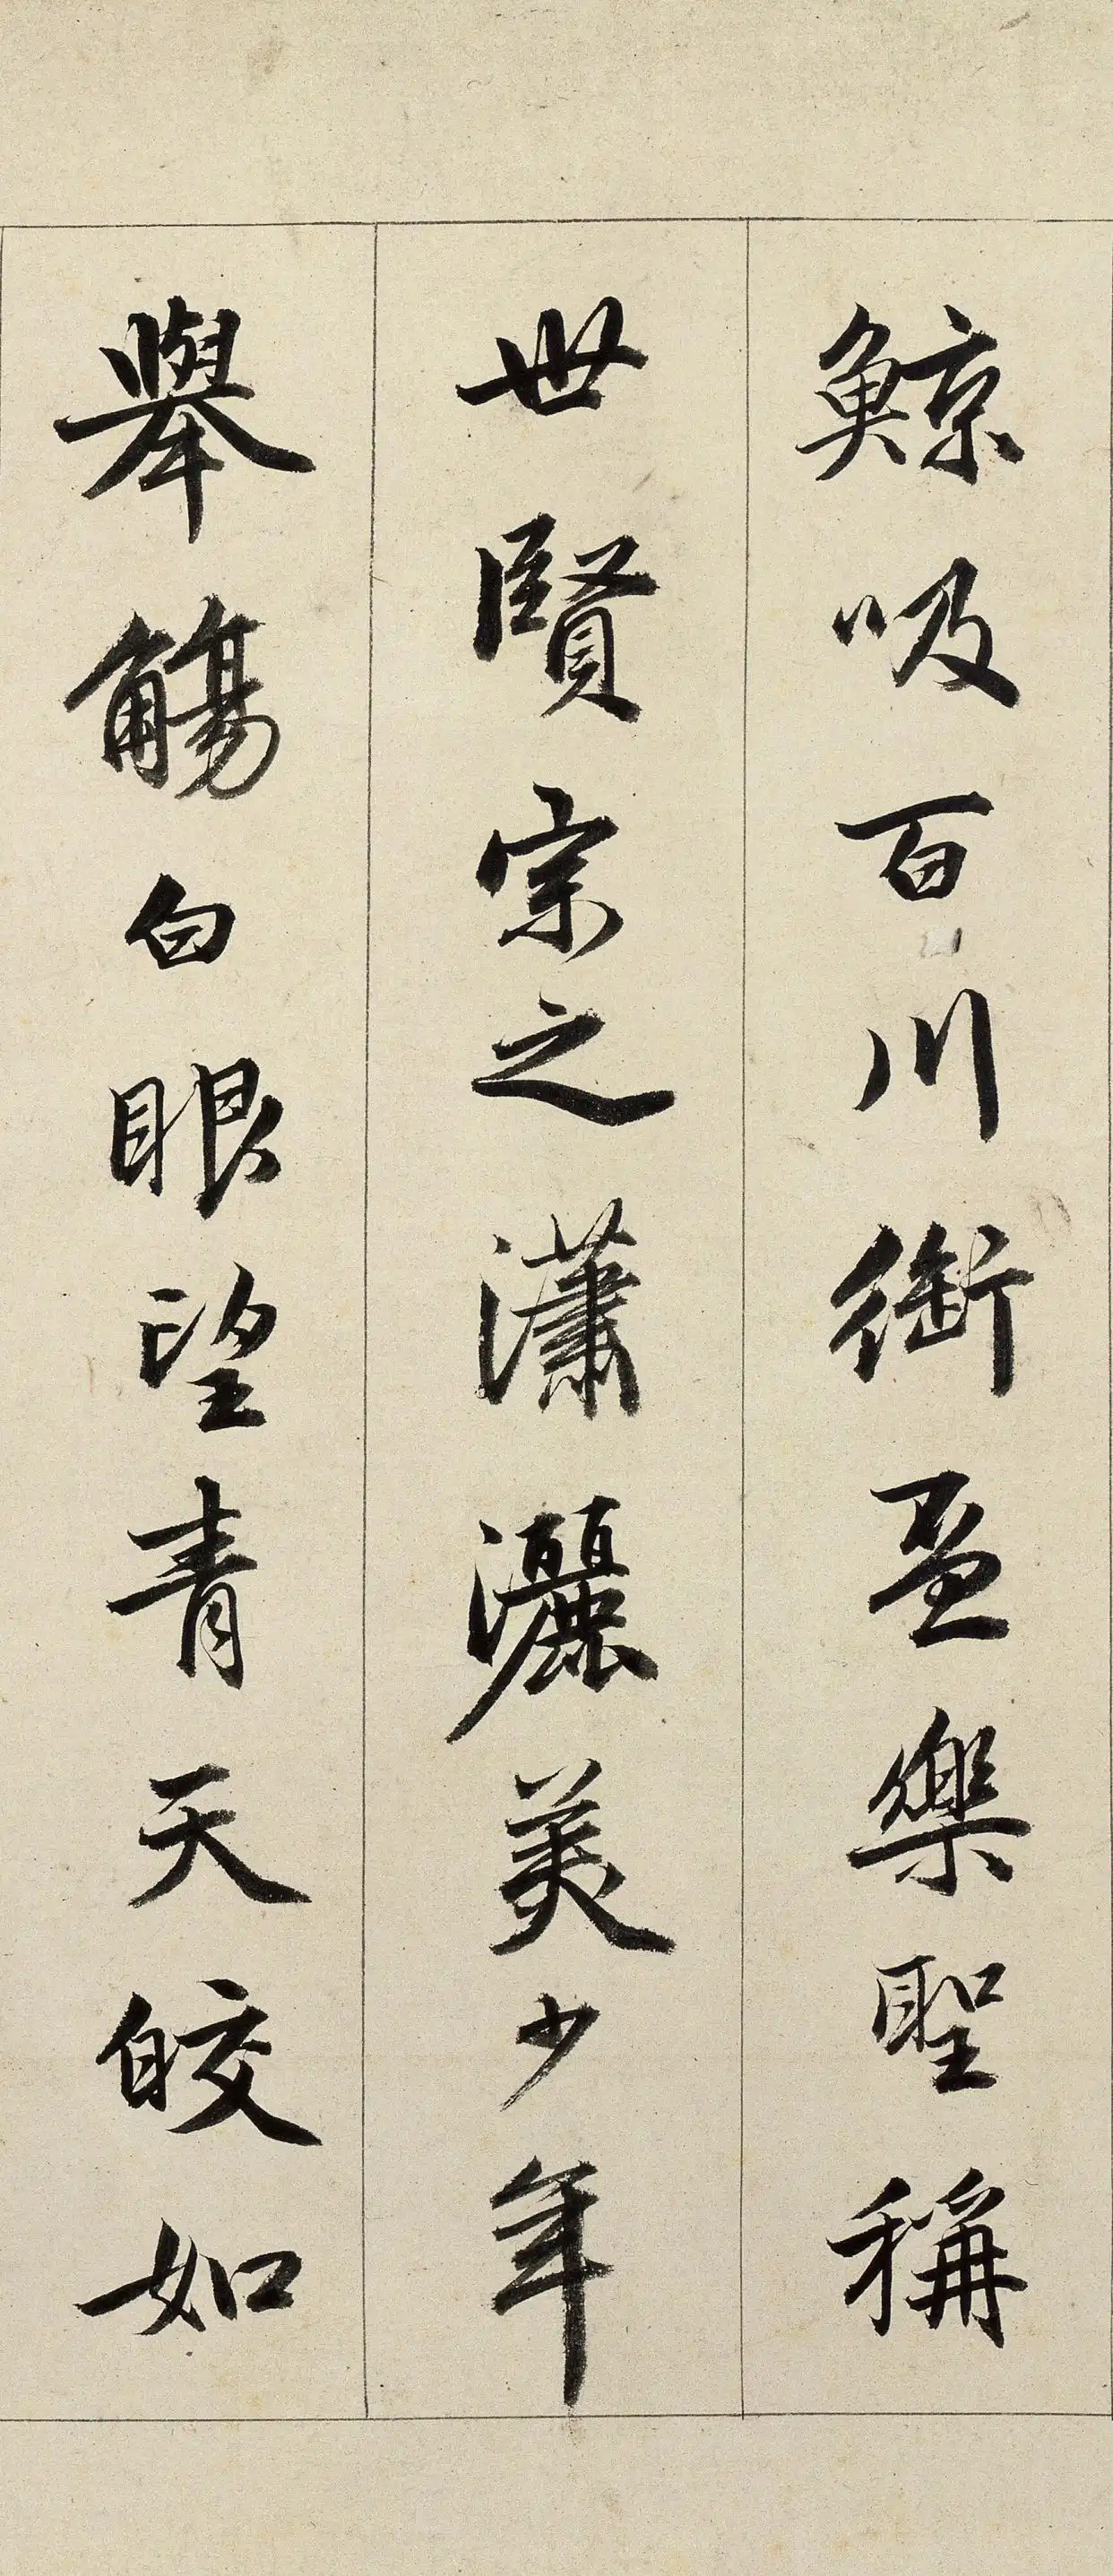 鯨吸百川銜盃樂聖稱
世賢宗之瀟灑美少年
舉觴白眼望青天皎如